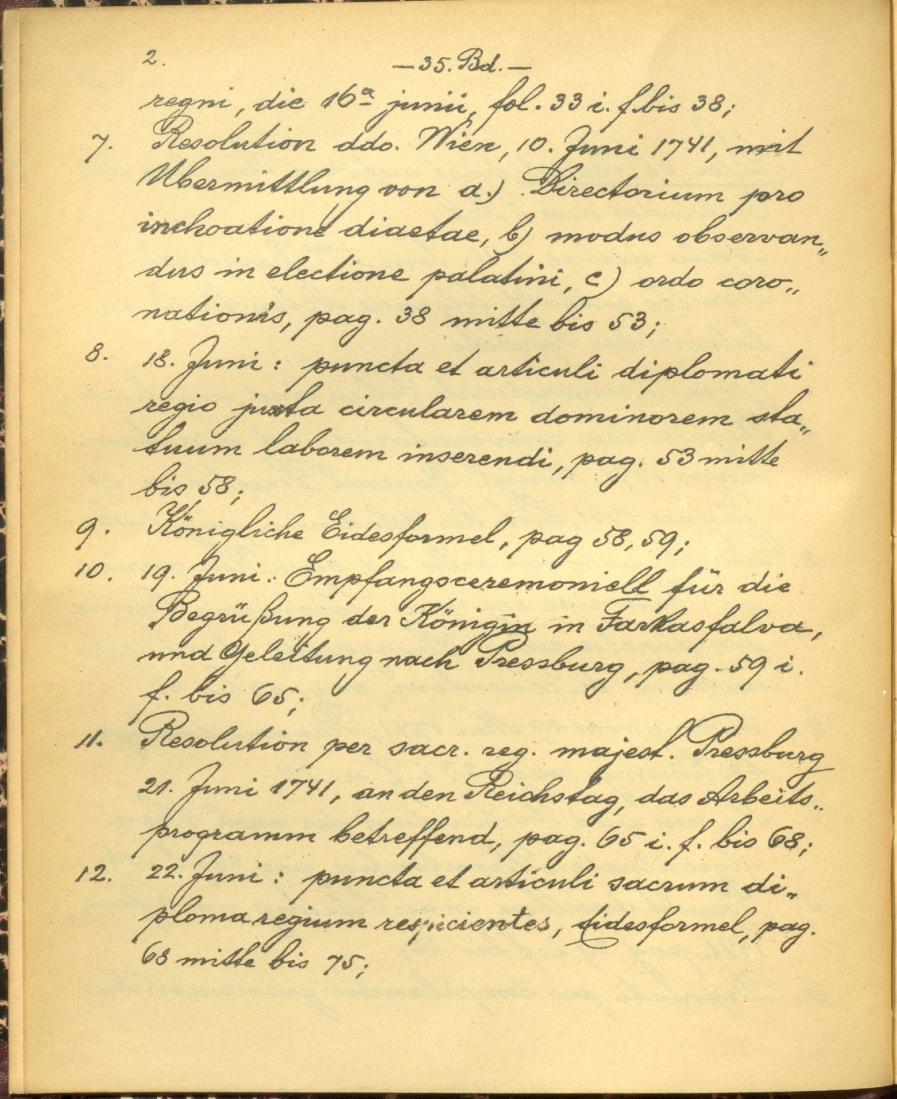 2.
—35. Bd.—
regni, die 16ª junii, fol. 33 i. f. bis 38;
7. Resolution ddo. Wien, 10. Juni 1741, mit
Übermittlung von a.) Directorium pro
inchoatione diaetae, b) modus observan„
dus in electione palatini, c) ordo coro„
nationis, pag. 38 mitte bis 53;
8. 18. Juni: puncta et articuli diplomati
regio juxta circularem dominorem sta„
tuum laborem inserendi, pag. 53 mitte
bis 58;
9. Königliche Eidesformel, pag 58, 59;
10. 19. Juni: Empfangsceremoniell für die
Begrüßung der Königin in Farkasfalva,
und Geleitung nach Pressburg, pag. 59 i.
f. bis 65;
11. Resolution per sacr. reg. majest. Pressburg
21. Juni 1741, an den Reichstag, das Arbeits„
programm betreffend, pag. 65 i. f. bis 68;
12. 22. Juni: puncta et articuli sacrum di„
ploma regium respicientes, Eidesformel, pag.
68 mitte bis 75;